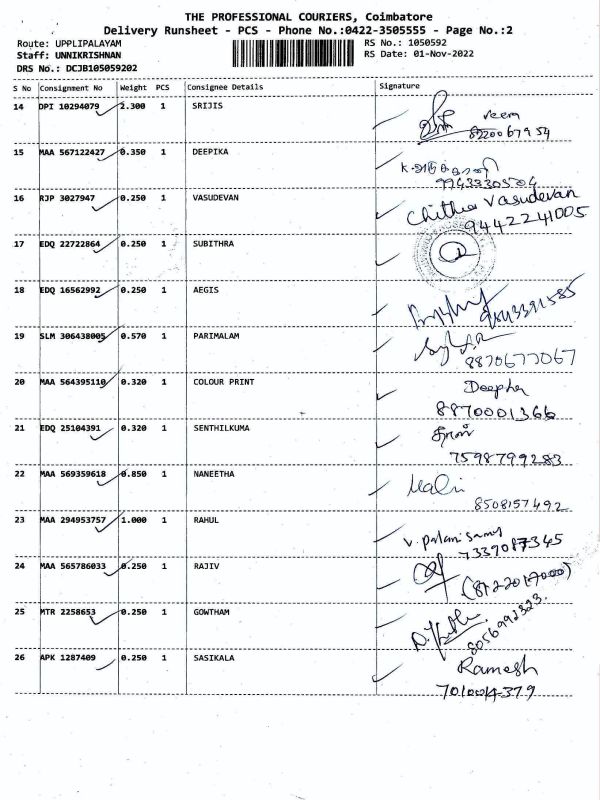 THE PROFESSIONAL COURIERS, Coimbatore
Delivery Runsheet - PCS - Phone No.:0422-3505555 - Page No.:2
Route: UPPLIPALAYAM RS No.: 1050592
Staff: UNNIKRISHNAN RS Date: 01-Nov-2022
DRS No.: DCJB105059202
S No Consignment No Weight PCS Consignee Details Signature
14 DPI 10294079 2.300 1 SRIJIS veera
8220067954
15 MAA 567122427 0.350 1 DEEPIKA
9943330504
16 RJP 3027947 0.250 1 VASUDEVAN Chithra Vasudevan
9442241005
17 EDQ 22722864 0.250 1 SUBITHRA
18 EDQ 16562992 0.250 1 AEGIS
19 SLM 306438005 0.570 1 PARIMALAM
8870677067
20 MAA 564395110 0.320 1 COLOUR PRINT Deepha
8870001366
21 EDQ 25104391 0.320 1 SENTHILKUMA
7598799283
22 MAA 569359618 0.850 1 NANEETHA Malri
8508157492
23 MAA 294953757 1.000 1 RAHUL V. palani samy
7339087345
24 MAA 565786033 0.250 1 RAJIV (8122017000)
25 MTR 2258653 0.250 1 GOWTHAM
8056992323.
26 APK 1287409 0.250 1 SASIKALA Ramesh
7010014379